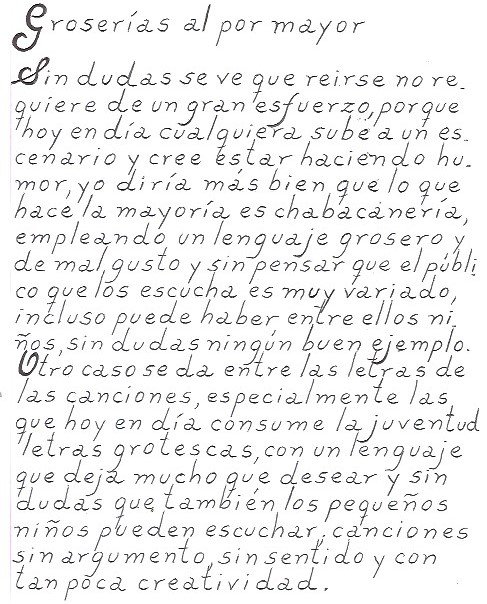 Groserías al por mayor
Sin dudas se ve que reirse no re-
quiere de un gran esfuerzo, porque
hoy en día cualquiera sube a un es-
cenario y cree estar haciendo hu-
mor, yo diría más bien que lo que
hace la mayoría es chabacanería,
empleando un lenguaje grosero y
de mal gusto y sin pensar que el públi
co que los escucha es muy variado,
incluso puede haber entre ellos ni
ños, sin dudas ningún buen ejemplo.
Otro caso se da entre las letras de
las canciones, especialmente las
que hoy en día consume la juventud
letras grotescas, con un lenguaje
que deja mucho que desear y sin
dudas que también los pequeños
niños pueden escuchar; canciones
sin argumento, sin sentido y con
tan poca creatividad.